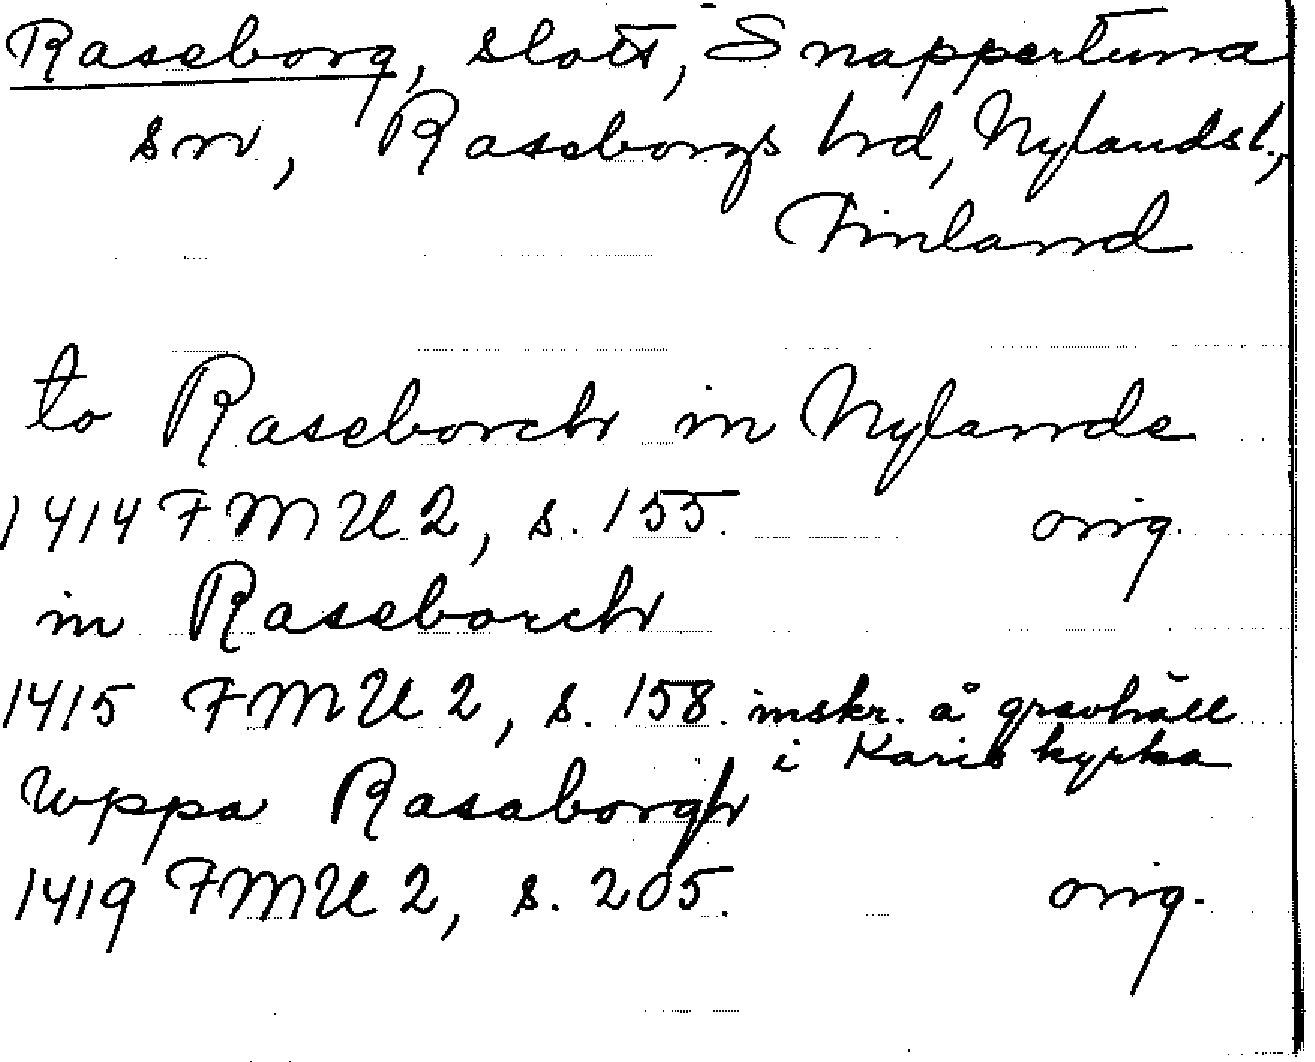 Raseborg, slott, Snappertuna
sn, Raseborgs hd, Nylands l.,
Finland
to Raseborch in Nylande
1414 FMU 2, s. 155. orig.
in Raseborch
1415 FMU 2, s. 158. inskr. å gravhäll
i Karis kyrka
uppa Rasaborgh
1419 FMU 2, s. 205. orig.